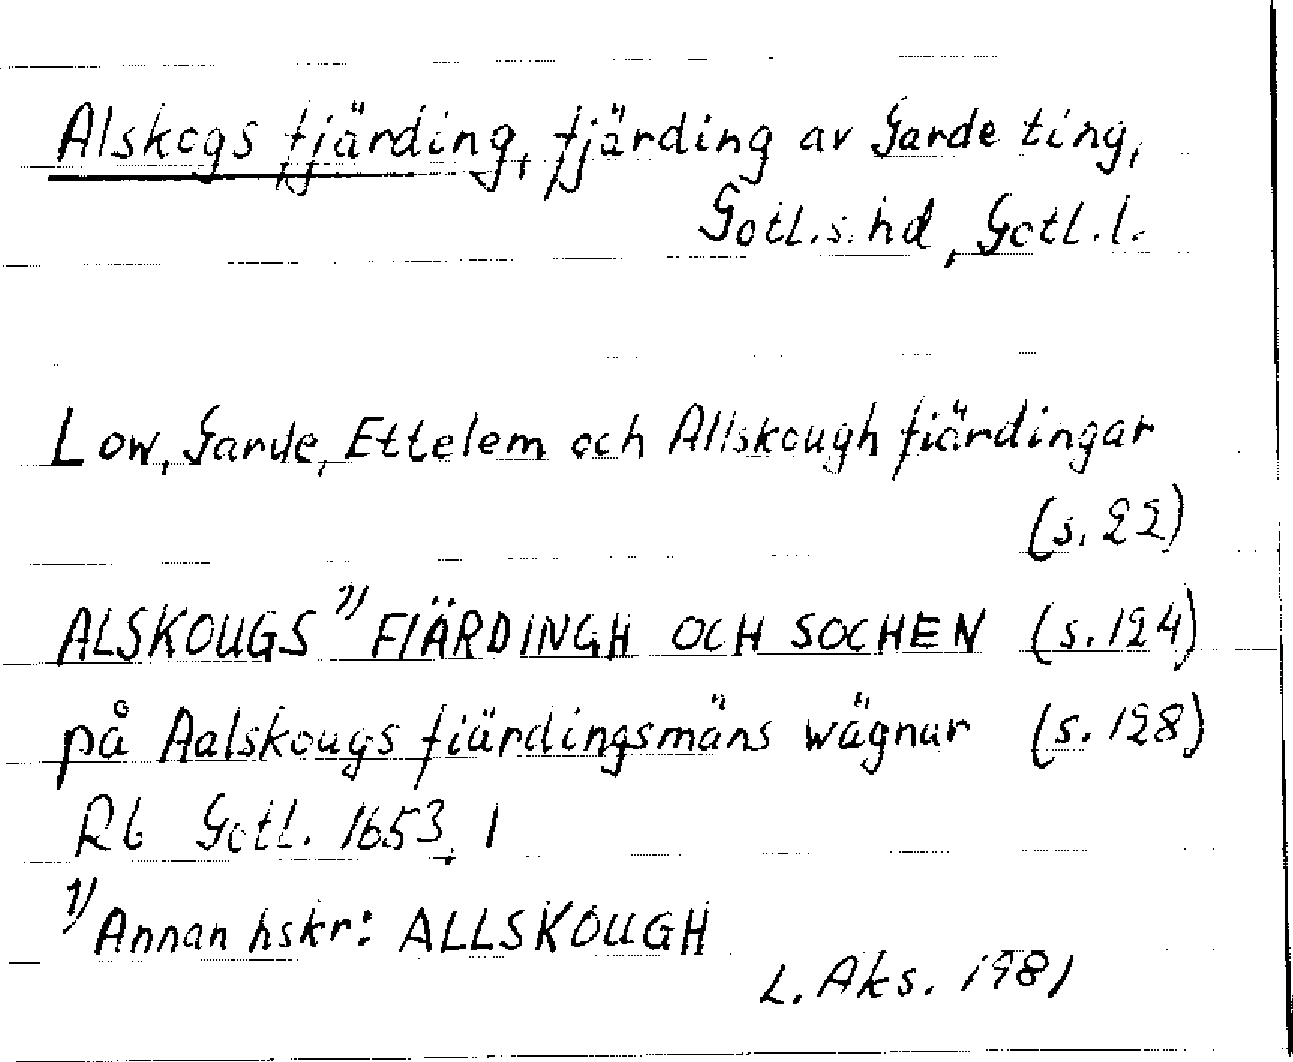 Alskogs fjärding, fjärding av Garde ting,
Gotl.s. hd, Gotl.l.
Low, Garde, Ettelem och Allskough fiärdingar
(s. 22)
ALSKOUGS 1) FIÄRDINGH OCH SOCHEN (s. 124)
på Aalskougs fiärdingsmäns wägnar (s. 128)
Rb Gotl. 1653, 1
1) Annan hskr: ALLSKOUGH
L. Aks. 1981